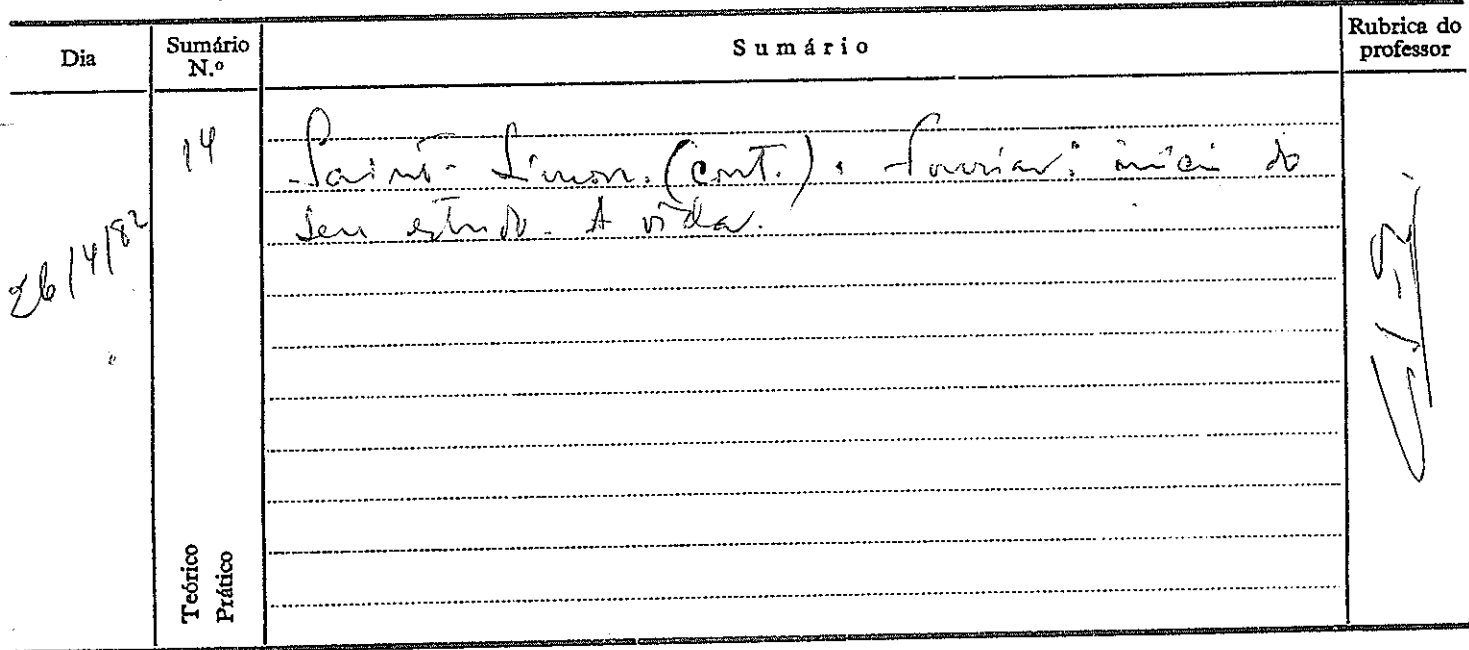 Dia
Sumário
N.º
Sumário
Rubrica do
professor
26/4/82
14
Saint-Simon. (cont.). Fourier: início do
seu estudo. A vida.
Teórico
Prático